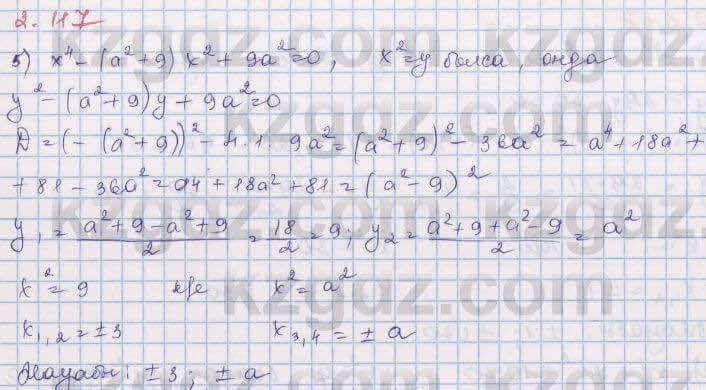 2.117
5) x⁴ - (a² + 9) x² + 9a² = 0, x² = y болса, онда
y² - (a² + 9) y + 9a² = 0
D = (-(a² + 9))² - 4·1·9a² = (a² + 9)² - 36a² = a⁴ + 18a² +
+ 81 - 36a² = a4 + 18a² + 81 = (a² - 9)²
y₁ = (a² + 9 - a² + 9)/2 = 18/2 = 9; y₂ = (a² + 9 + a² - 9)/2 = a²
x² = 9 не x² = a²
x₁,₂ = ±3 x₃,₄ = ± a
Жауабы: ± 3; ± a
kzgdz.com